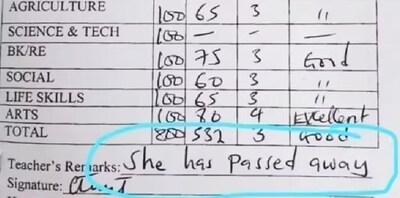 AGRICULTURE 100 65 3 "
SCIENCE & TECH 100 — — —
BK/RE 100 75 3 Good
SOCIAL 100 60 3 "
LIFE SKILLS 100 65 3 "
ARTS 100 80 4 Excellent
TOTAL 800 532 3 Good
Teacher's Remarks: She has passed away
Signature: